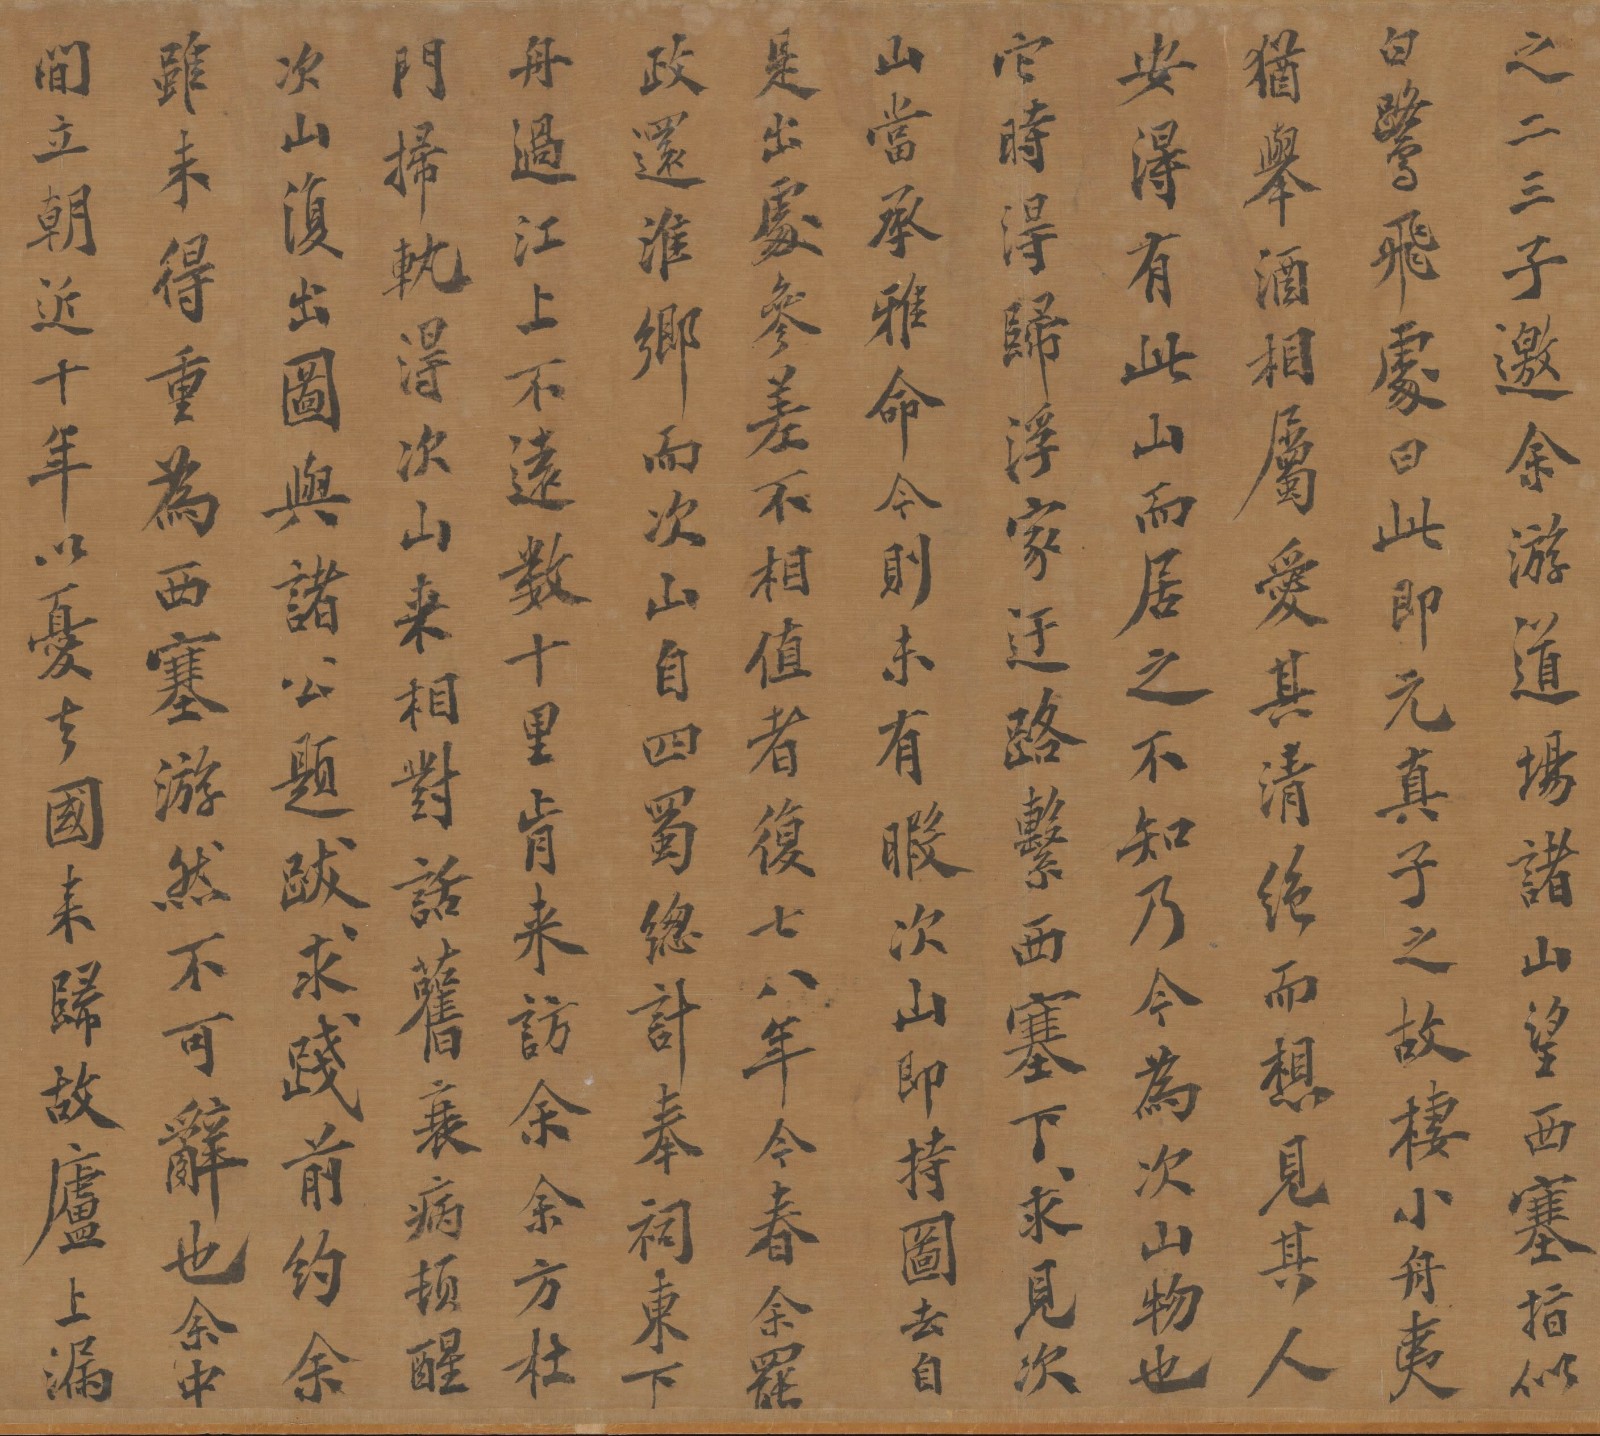 之二三子邀余游道場諸山望西塞指似
白鷺飛處曰此即元真子之故棲小舟夷
猶舉酒相屬愛其清絶而想見其人
安得有此山而居之不知乃今為次山物也
它時得歸浮家迂路繫西塞下求見次
山當承雅命今則未有暇次山即持圖去自
是出處參差不相值者復七八年今春余罷
政還淮鄉而次山自四蜀總計奉祠東下
舟過江上不遠數十里肯来訪余余方杜
門掃軌得次山来相對話舊衰病頓醒
次山復出圖與諸公題跋求踐前約余
雖未得重為西塞游然不可辭也余中
間立朝近十年以憂去國未歸故廬上漏